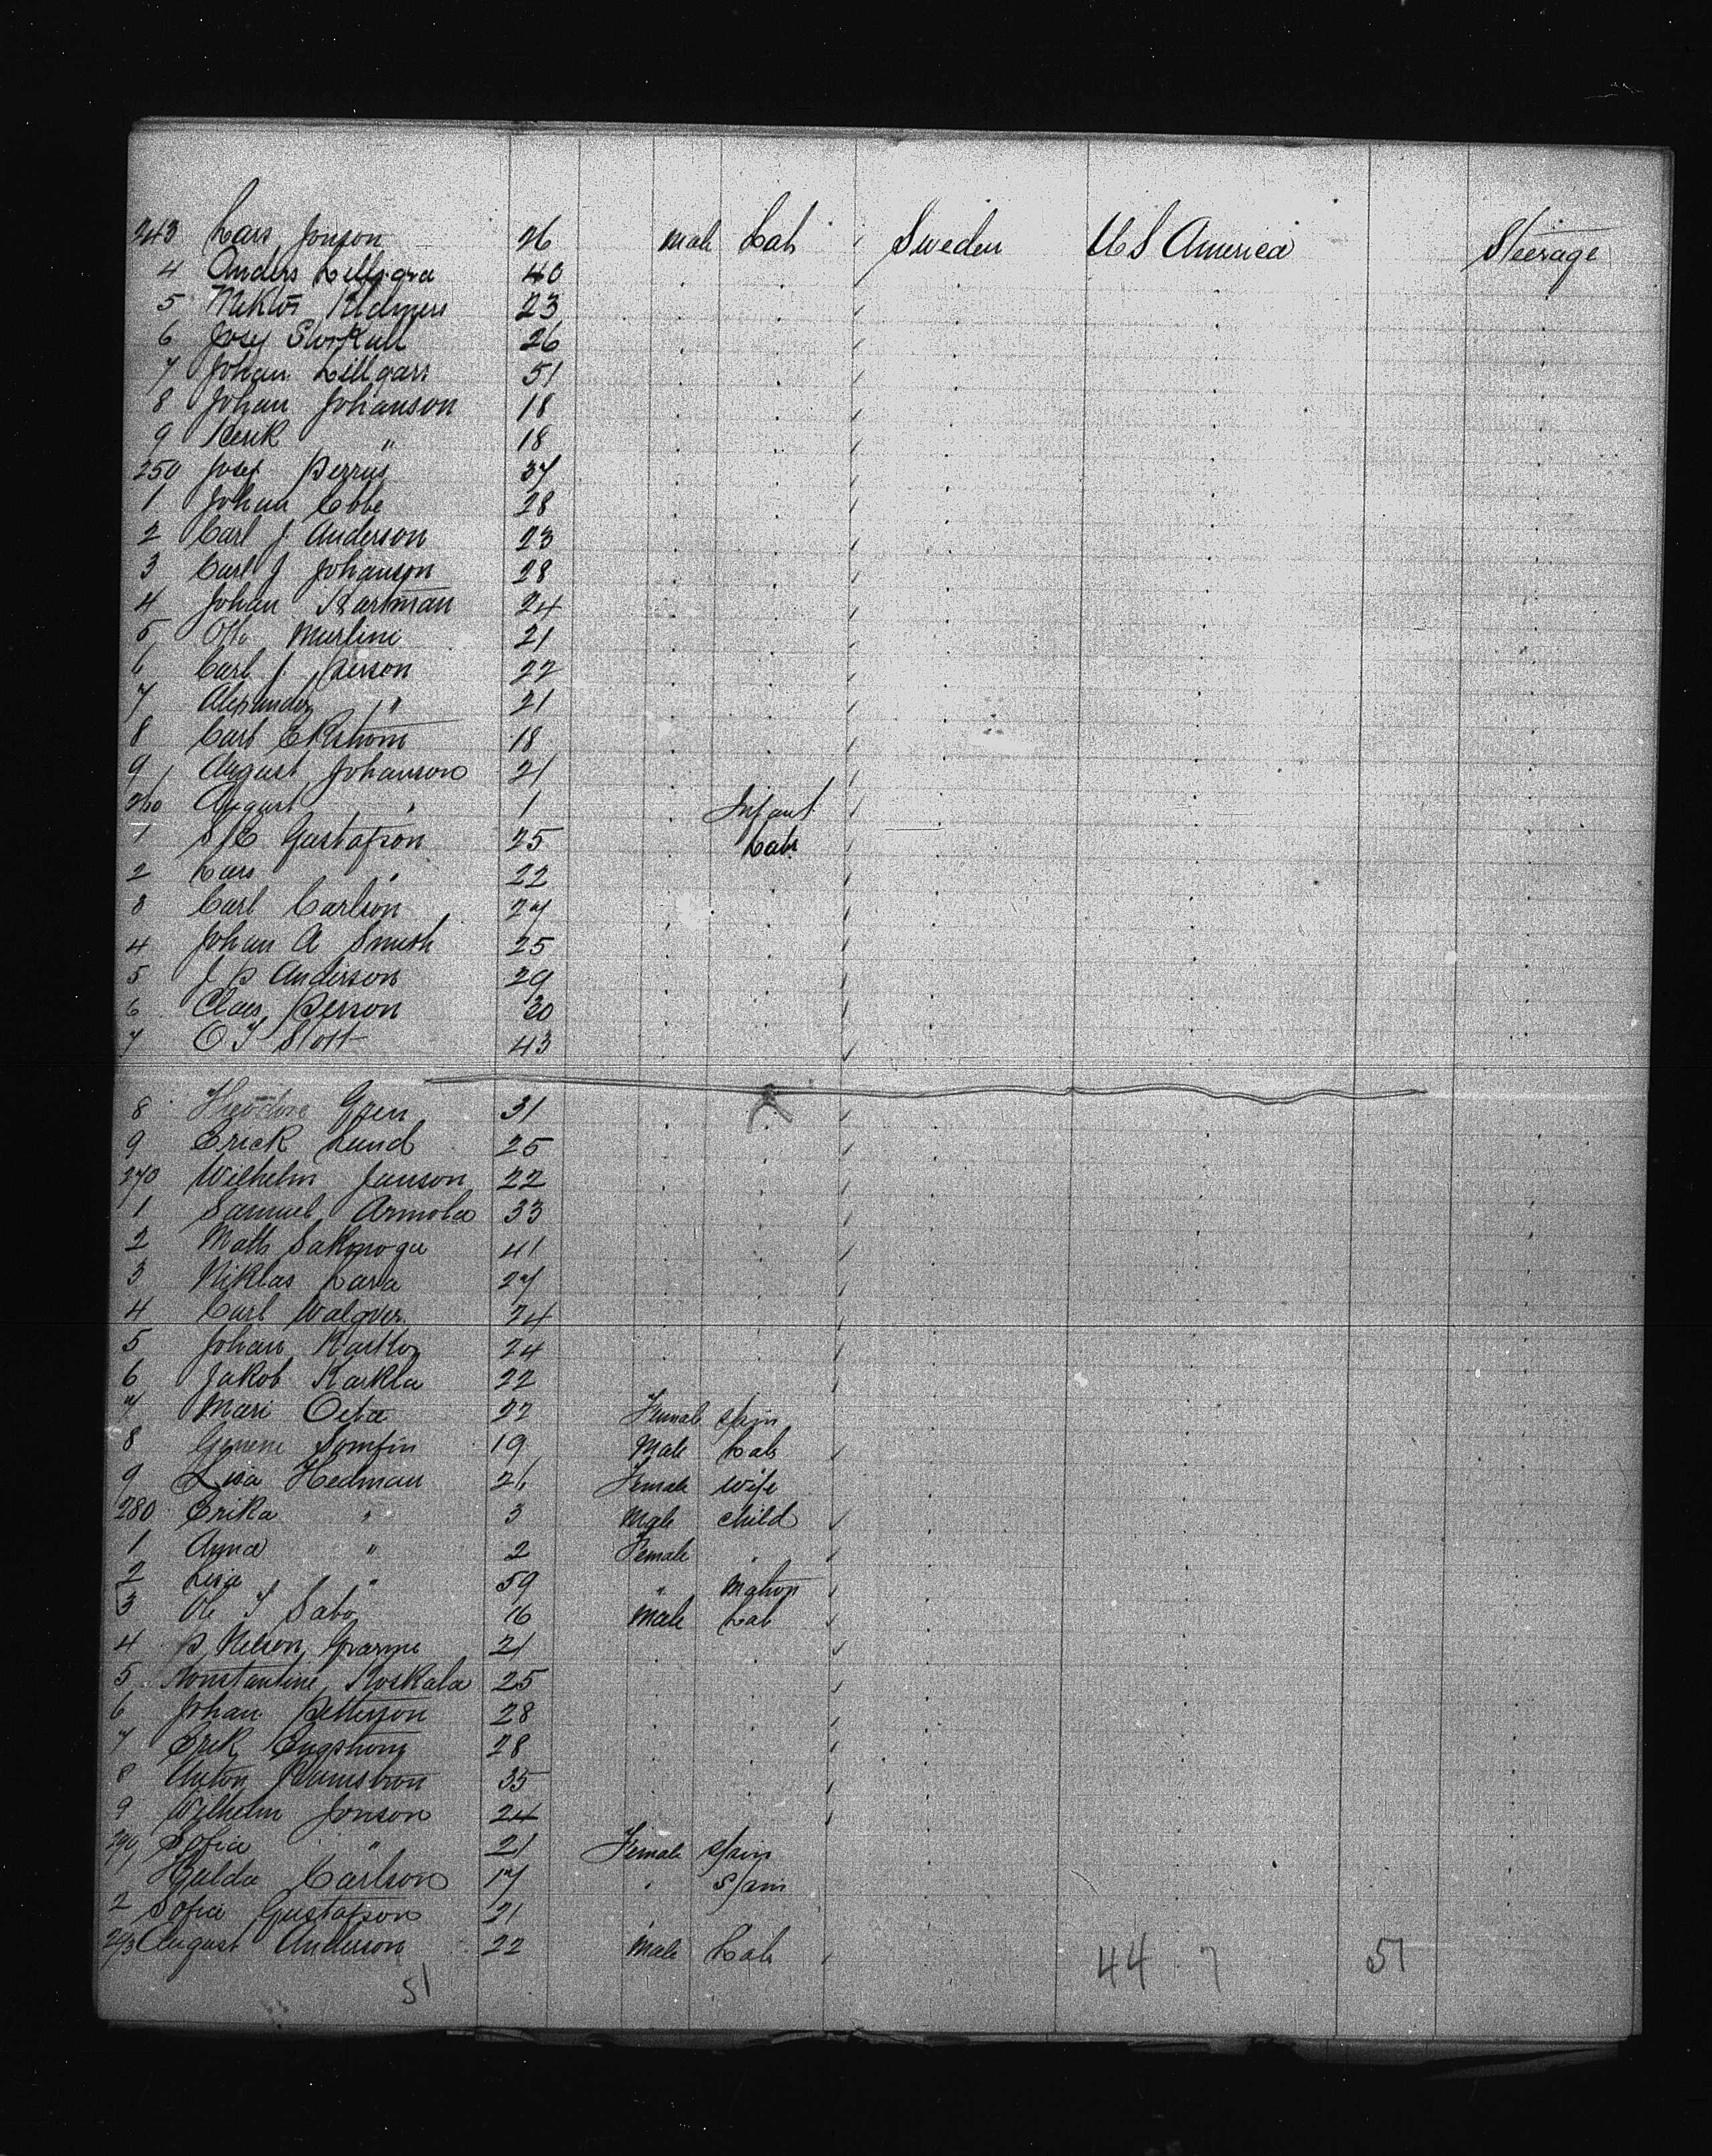 243 Lars Jonson 26 Male Lab Sweden U S America Steerage
4 Anders Lillgora 40
5 23
6 Josef 26
7 Johan Lillgars 51
8 Johan Johanson 18
9 " 18
250 Josef 37
1 Johan Ebbe 28
2 Carl J Anderson 23
3 Carl J Johanson 28
4 Johan Hartman 24
5 Otto 21
6 Carl J Person 22
7 Alexander " 21
8 Carl Ekstrom 18
9 August Johanson 21
260 August " 1 Infant
1 Gustafson 25 Lab
2 Lars " 22
3 Carl Carlson 27
4 Johan A Smith 25
5 J P Anderson 29
6 Claes Person 30
7 O T Stott 43
8 Theodore Gren 31
9 Erick Lund 25
270 Wilhelm Janson 22
1 Samuel Armola 33
2 Matts 41
3 Niklas Lara 27
4 Carl 24
5 Johan 24
6 Jakob Karkla 22
7 Mari 22 Female Spin
8 19 Male Lab
9 Lisa Hedman 26 Female Wife
280 Erika " 3 Male Child
1 Anna " 2 Female "
2 Lisa " 59 " Matron
3 Ole T Sabo 16 Male Lab
4 P Nelson 21
5 Konstantine Koskala 25
6 Johan Petterson 28
7 Erik Engstrom 28
8 Anton 35
9 Wilhelm Jonson 24
290 Sofia " 21 Female Spin
1 Hulda Carlson 17 " Spin
2 Sofia Gustafson 21
293 August Anderson 22 Male Lab
51 44 7 51